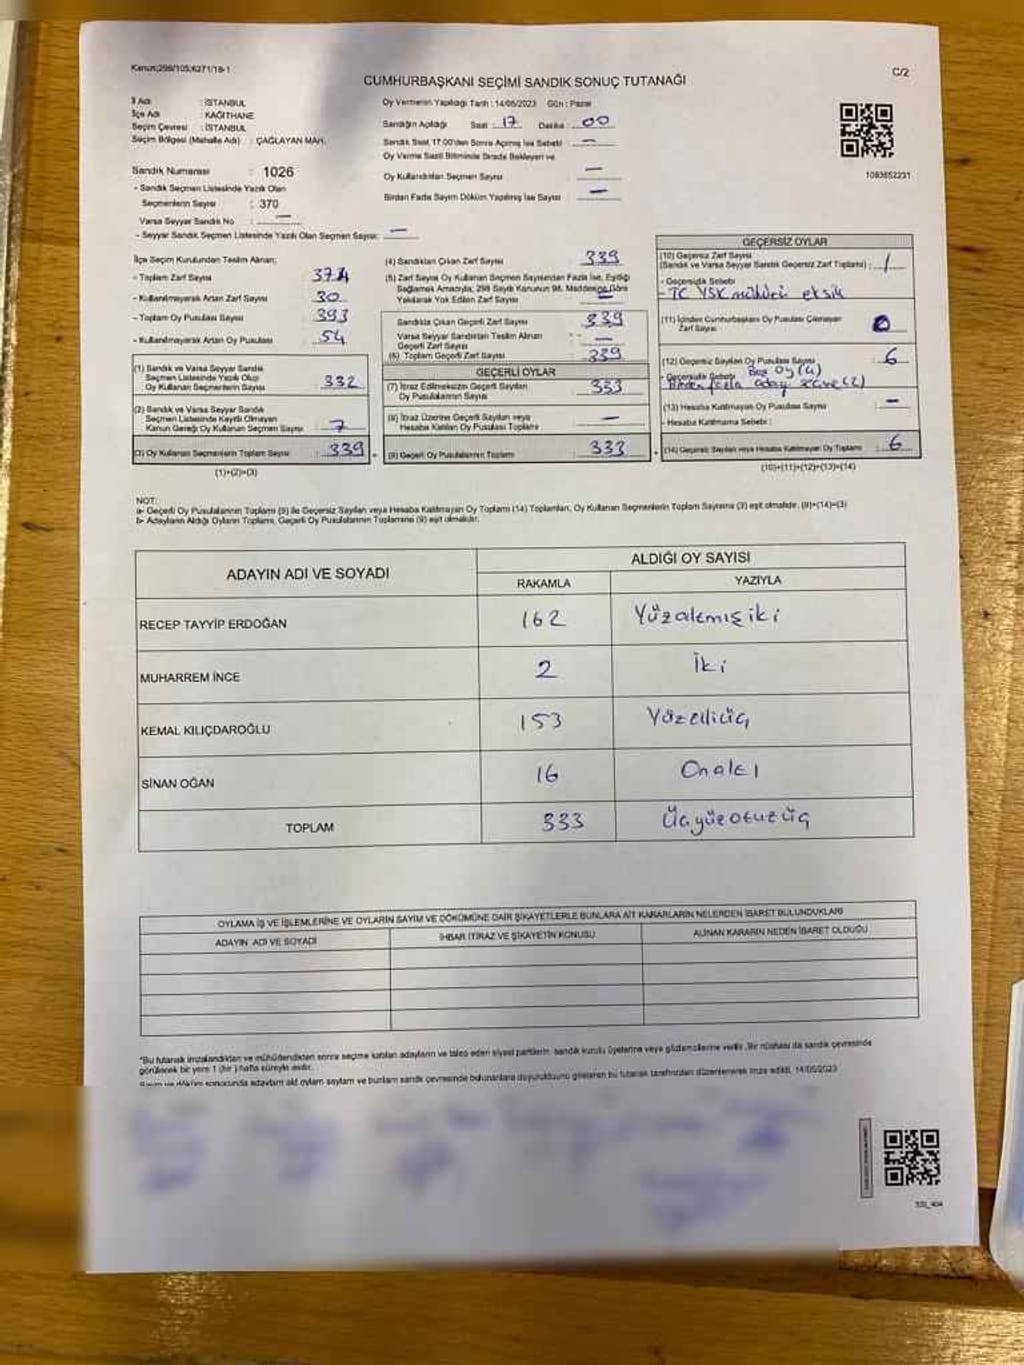 Kanun;298/105;6271/19-1
C/2
CUMHURBAŞKANI SEÇİMİ SANDIK SONUÇ TUTANAĞI
İl Adı : İSTANBUL
İlçe Adı : KAĞITHANE
Seçim Çevresi : İSTANBUL
Seçim Bölgesi (Mahalle Adı) : ÇAĞLAYAN MAH.
Oy Vermenin Yapıldığı Tarih : 14/05/2023 Gün : Pazar
Sandığın Açıldığı Saat : 17 Dakika : 00
Sandık Saat 17:00'den Sonra Açılmış İse Sebebi : —
Oy Verme Saati Bitiminde Sırada Bekleyen ve
Oy Kullandırılan Seçmen Sayısı : —
Birden Fazla Sayım Döküm Yapılmış İse Sayısı : —
1093652231
Sandık Numarası : 1026
- Sandık Seçmen Listesinde Yazılı Olan
Seçmenlerin Sayısı : 370
Varsa Seyyar Sandık No : —
- Seyyar Sandık Seçmen Listesinde Yazılı Olan Seçmen Sayısı: —
İlçe Seçim Kurulundan Teslim Alınan;
- Toplam Zarf Sayısı
- Kullanılmayarak Artan Zarf Sayısı : 30
- Toplam Oy Pusulası Sayısı : 393
- Kullanılmayarak Artan Oy Pusulası : 54
(1) Sandık ve Varsa Seyyar Sandık
Seçmen Listesinde Yazılı Olup
Oy Kullanan Seçmenlerin Sayısı : 332
(2) Sandık ve Varsa Seyyar Sandık
Seçmen Listesinde Kayıtlı Olmayan
Kanun Gereği Oy Kullanan Seçmen Sayısı : 7
(3) Oy Kullanan Seçmenlerin Toplam Sayısı : 339
(1)+(2)=(3)
(4) Sandıktan Çıkan Zarf Sayısı : 339
(5) Zarf Sayısı Oy Kullanan Seçmen Sayısından Fazla İse, Eşitliği
Sağlamak Amacıyla; 298 Sayılı Kanunun 98. Maddesine Göre
Yakılarak Yok Edilen Zarf Sayısı : —
Sandıkta Çıkan Geçerli Zarf Sayısı : 339
Varsa Seyyar Sandıktan Teslim Alınan
Geçerli Zarf Sayısı : —
(6) Toplam Geçerli Zarf Sayısı : 339
GEÇERLİ OYLAR
(7) İtiraz Edilmeksizin Geçerli Sayılan
Oy Pusulalarının Sayısı : 333
(8) İtiraz Üzerine Geçerli Sayılan veya
Hesaba Katılan Oy Pusulası Toplamı : —
(9) Geçerli Oy Pusulalarının Toplamı : 333
GEÇERSİZ OYLAR
(10) Geçersiz Zarf Sayısı
(Sandık ve Varsa Seyyar Sandık Geçersiz Zarf Toplamı) :
- Geçersizlik Sebebi
- TC YSK mühürü eksik
(11) İçinden Cumhurbaşkanı Oy Pusulası Çıkmayan
Zarf Sayısı : 0
(12) Geçersiz Sayılan Oy Pusulası Sayısı : 6
- Geçersizlik Sebebi : Boş Oy (4)
Birden fazla aday seçme (2)
(13) Hesaba Katılmayan Oy Pusulası Sayısı : —
- Hesaba Katılmama Sebebi :
(14) Geçersiz Sayılan veya Hesaba Katılmayan Oy Toplamı : 6
(10)+(11)+(12)+(13)=(14)
NOT:
a- Geçerli Oy Pusulalarının Toplamı (9) ile Geçersiz Sayılan veya Hesaba Katılmayan Oy Toplamı (14) Toplamları, Oy Kullanan Seçmenlerin Toplam Sayısına (3) eşit olmalıdır. (9)+(14)=(3)
b- Adayların Aldığı Oyların Toplamı, Geçerli Oy Pusulalarının Toplamına (9) eşit olmalıdır.
ADAYIN ADI VE SOYADI ALDIĞI OY SAYISI
RAKAMLA YAZIYLA
RECEP TAYYİP ERDOĞAN 162 Yüzaltmışiki
MUHARREM İNCE 2 İki
KEMAL KILIÇDAROĞLU 153 Yüzelliüç
SİNAN OĞAN 16 Onaltı
TOPLAM 333 Üçyüzotuzüç
OYLAMA İŞ VE İŞLEMLERİNE VE OYLARIN SAYIM VE DÖKÜMÜNE DAİR ŞİKAYETLERLE BUNLARA AİT KARARLARIN NELERDEN İBARET BULUNDUKLARI
ADAYIN ADI VE SOYADI İHBAR İTİRAZ VE ŞİKAYETİN KONUSU ALINAN KARARIN NEDEN İBARET OLDUĞU
*Bu tutanak imzalandıktan ve mühürlendikten sonra seçime katılan adayların ve talep eden siyasi partilerin sandık kurulu üyelerine veya gözlemcilerine verilir. Bir nüshası da sandık çevresinde
görülecek bir yere 1 (bir) hafta süreyle asılır.
Sayım ve döküm sonucunda adayların ad oyların sayıları ve bunların sandık çevresinde bulunanlara duyurulduğunu gösteren bu tutanak tarafımızdan düzenlenerek imza edildi. 14/05/2023